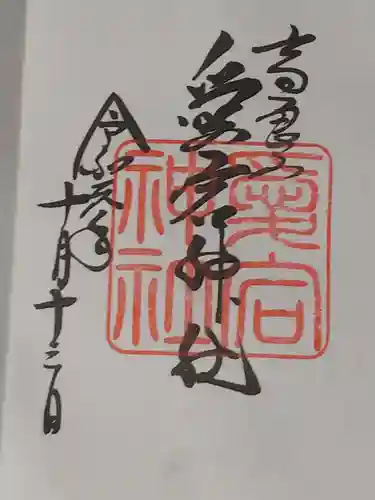 愛宕神社
令和元年
十月十三日
愛宕
神社